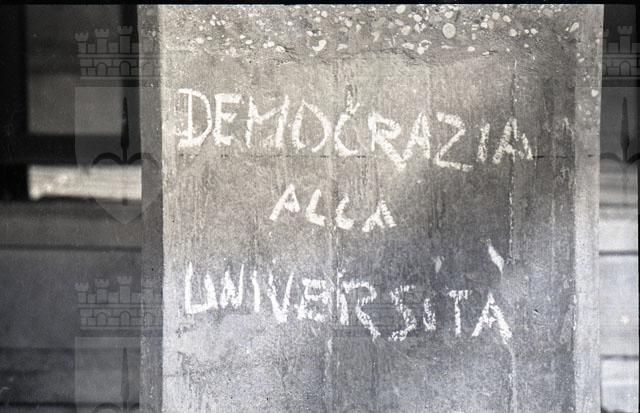 DEMOCRAZIA
ALLA
UNIVERSITÀ